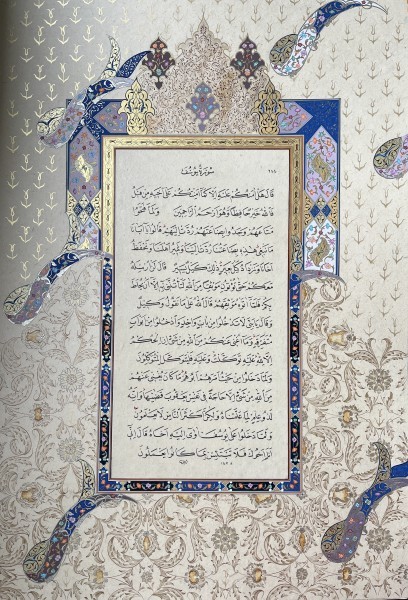 سورة يوسف
قال هل آمنكم عليه إلا كما أمنتكم على أخيه من قبل
فالله خير حافظا وهو أرحم الراحمين ولما فتحوا
متاعهم وجدوا بضاعتهم ردت إليهم قالوا يا أبانا
ما نبغي هذه بضاعتنا ردت إلينا ونمير أهلنا ونحفظ
أخانا ونزداد كيل بعير ذلك كيل يسير قال لن أرسله
معكم حتى تؤتون موثقا من الله لتأتنني به إلا أن يحاط
بكم فلما آتوه موثقهم قال الله على ما نقول وكيل
وقال يا بني لا تدخلوا من باب واحد وادخلوا من أبواب
متفرقة وما أغني عنكم من الله من شيء إن الحكم
إلا لله عليه توكلت وعليه فليتوكل المتوكلون
ولما دخلوا من حيث أمرهم أبوهم ما كان يغني عنهم
من الله من شيء إلا حاجة في نفس يعقوب قضاها وإنه
لذو علم لما علمناه ولكن أكثر الناس لا يعلمون
ولما دخلوا على يوسف آوى إليه أخاه قال إني
أنا أخوك فلا تبتئس بما كانوا يعملون